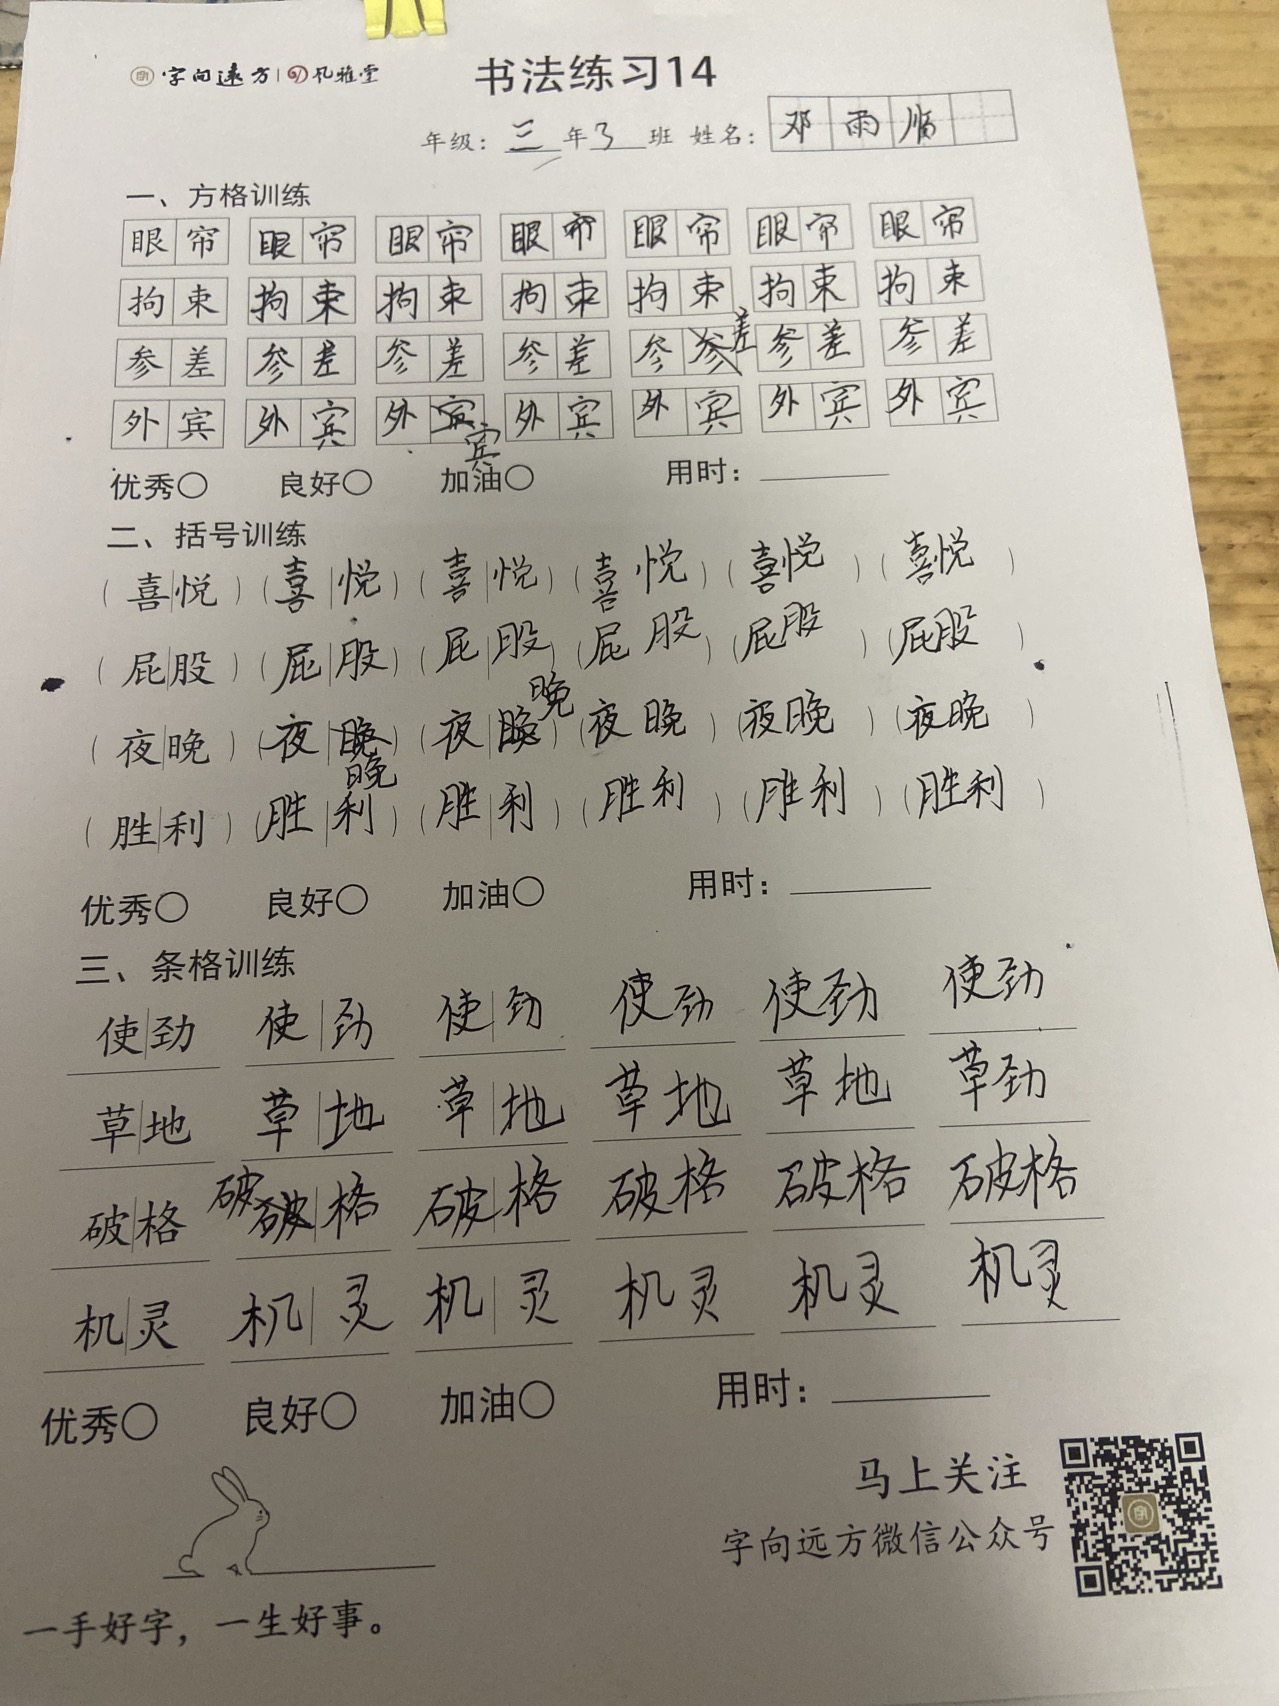 字向远方 | 风雅堂
书法练习14
年级：三年3班 姓名：邓雨顺
一、方格训练
眼帘 眼帘 眼帘 眼帘 眼帘 眼帘 眼帘
拘束 拘束 拘束 拘束 拘束 拘束 拘束
参差 参差 参差 参差 参差 参差 参差
外宾 外宾 外宾 外宾 外宾 外宾 外宾
优秀○ 良好○ 加油○ 用时：
二、括号训练
（喜|悦）（喜|悦）（喜|悦）（喜悦）（喜悦）（喜悦）
（屁|股）（屁|股）（屁|股）（屁股）（屁股）（屁股）
（夜|晚）（夜|晚）（夜|晚）（夜晚）（夜晚）（夜晚）
（胜|利）（胜|利）（胜|利）（胜利）（胜利）（胜利）
优秀○ 良好○ 加油○ 用时：
三、条格训练
使|劲 使|劲 使|劲 使劲 使劲 使劲
草|地 草|地 草|地 草地 草地 草劲
破|格 破|格 破|格 破格 破格 破格
机|灵 机|灵 机|灵 机灵 机灵 机灵
优秀○ 良好○ 加油○ 用时：
马上关注
字向远方微信公众号
一手好字，一生好事。